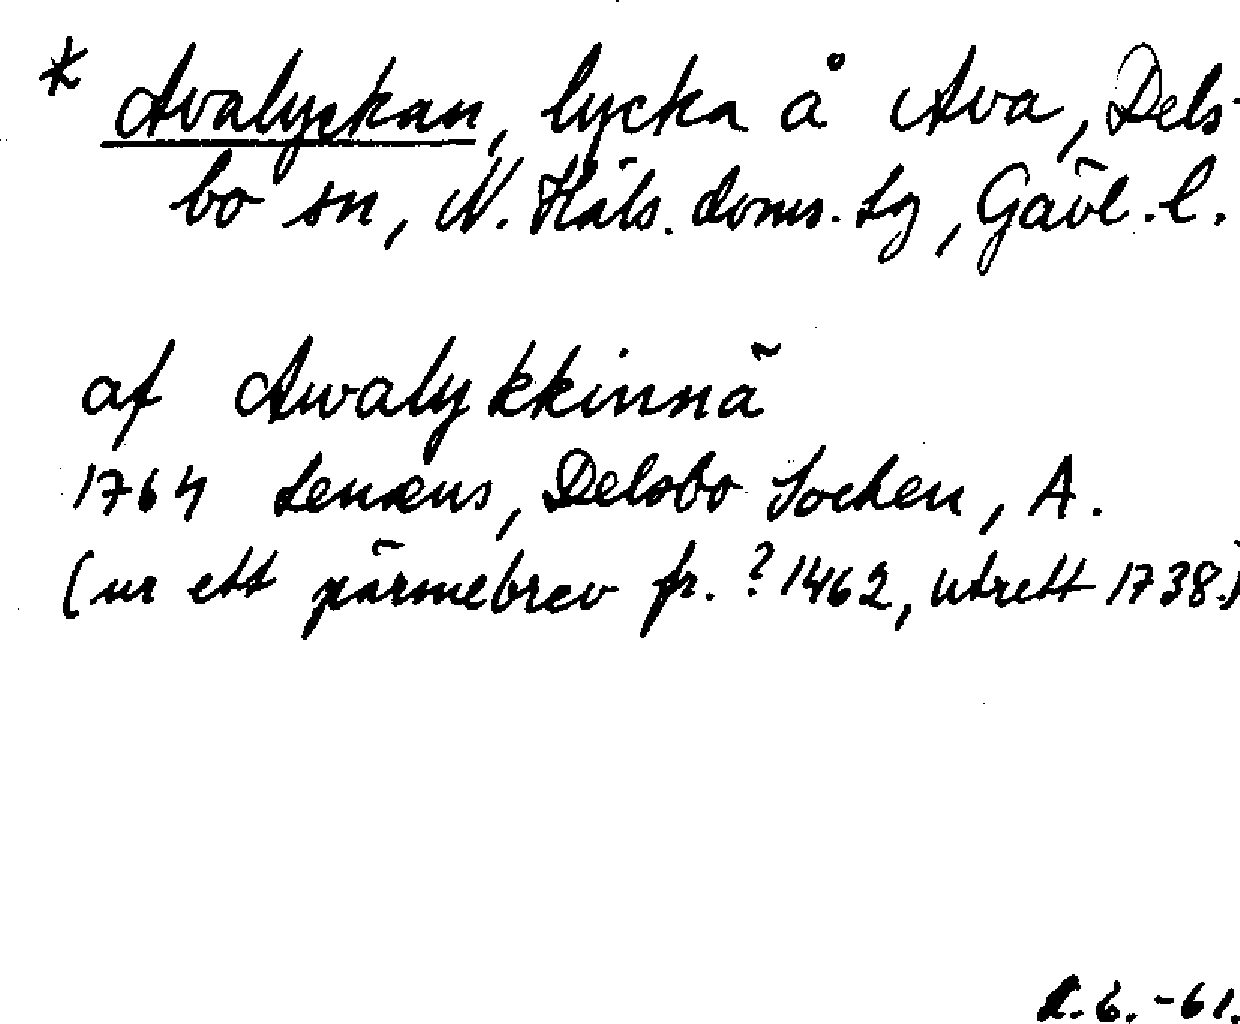 * Avalyckan, lycka å Ava, Dels-
bo sn, N. Häls. doms. Lg, Gävl. l.
af Awalykkinnä
1764 Lenæus, Delsbo Sochen, A.
(ur ett pärmebrev fr. ? 1462, utrett 1738.)
6.-61.